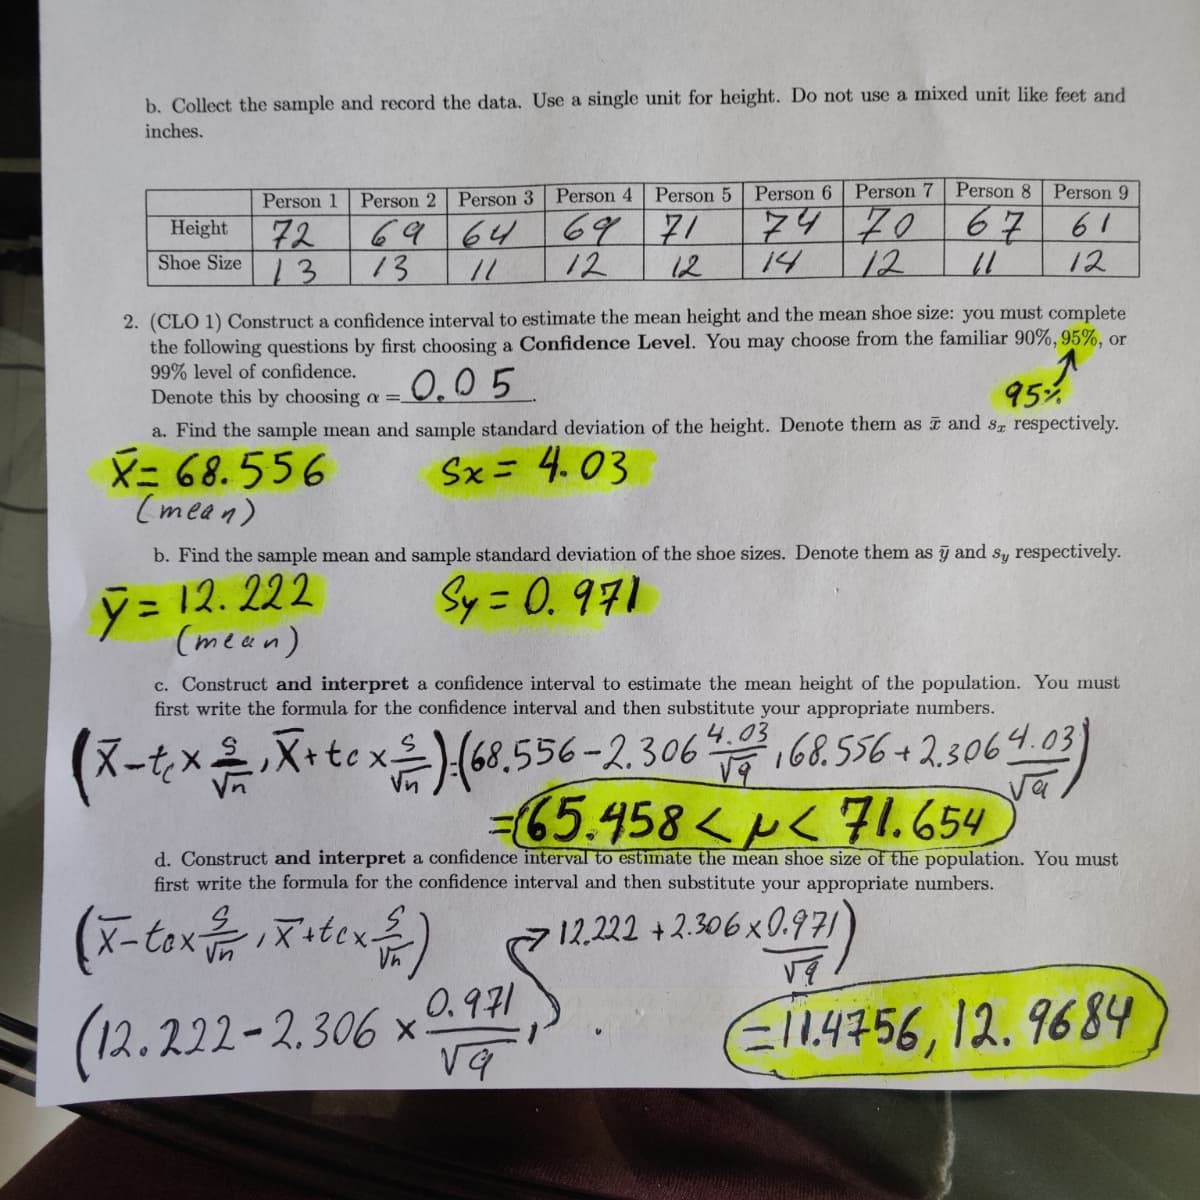 b. Collect the sample and record the data. Use a single unit for height. Do not use a mixed unit like feet and
inches.
Person 1 Person 2 Person 3 Person 4 Person 5 Person 6 Person 7 Person 8 Person 9
Height 72 69 64 69 71 74 70 67 61
Shoe Size 13 13 11 12 12 14 12 11 12
2. (CLO 1) Construct a confidence interval to estimate the mean height and the mean shoe size: you must complete
the following questions by first choosing a Confidence Level. You may choose from the familiar 90%, 95%, or
99% level of confidence.
Denote this by choosing α = 0.05.
95%
a. Find the sample mean and sample standard deviation of the height. Denote them as x̄ and sₓ respectively.
x̄ = 68.556 Sx = 4.03
(mean)
b. Find the sample mean and sample standard deviation of the shoe sizes. Denote them as ȳ and s_y respectively.
ȳ = 12.222 Sy = 0.971
(mean)
c. Construct and interpret a confidence interval to estimate the mean height of the population. You must
first write the formula for the confidence interval and then substitute your appropriate numbers.
(x̄ - tc × s/√n, x̄ + tc × s/√n) = (68.556 - 2.306 4.03/√9, 68.556 + 2.306 4.03/√9)
= (65.458 < μ < 71.654)
d. Construct and interpret a confidence interval to estimate the mean shoe size of the population. You must
first write the formula for the confidence interval and then substitute your appropriate numbers.
(x̄ - tc × s/√n, x̄ + tc × s/√n)
(12.222 - 2.306 × 0.971/√9, → 12.222 + 2.306 × 0.971/√9)
= 11.4756, 12.9684)